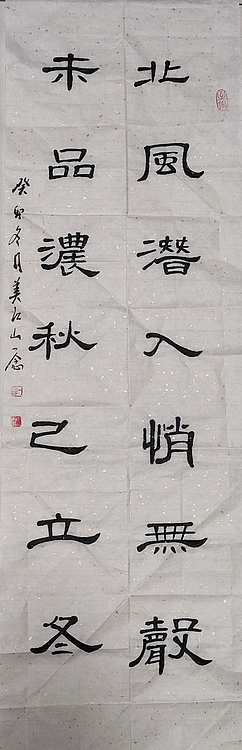 北風潛入悄無聲
未品濃秋已立冬
癸卯冬月美江山一念